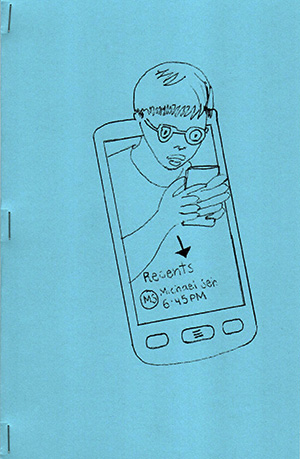 Recents
MS Michael Seir
6:45PM